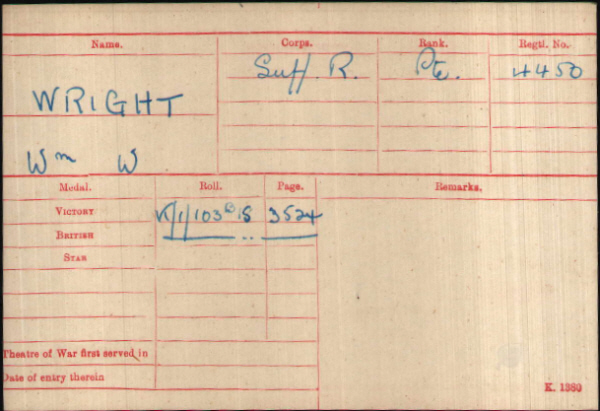 Name. Corps. Rank. Regtl. No.
WRIGHT Suff. R. Pte. 4450
Wm W
Medal. Roll. Page. Remarks.
VICTORY 3524
BRITISH " "
STAR
Theatre of War first served in
Date of entry therein
K. 1380